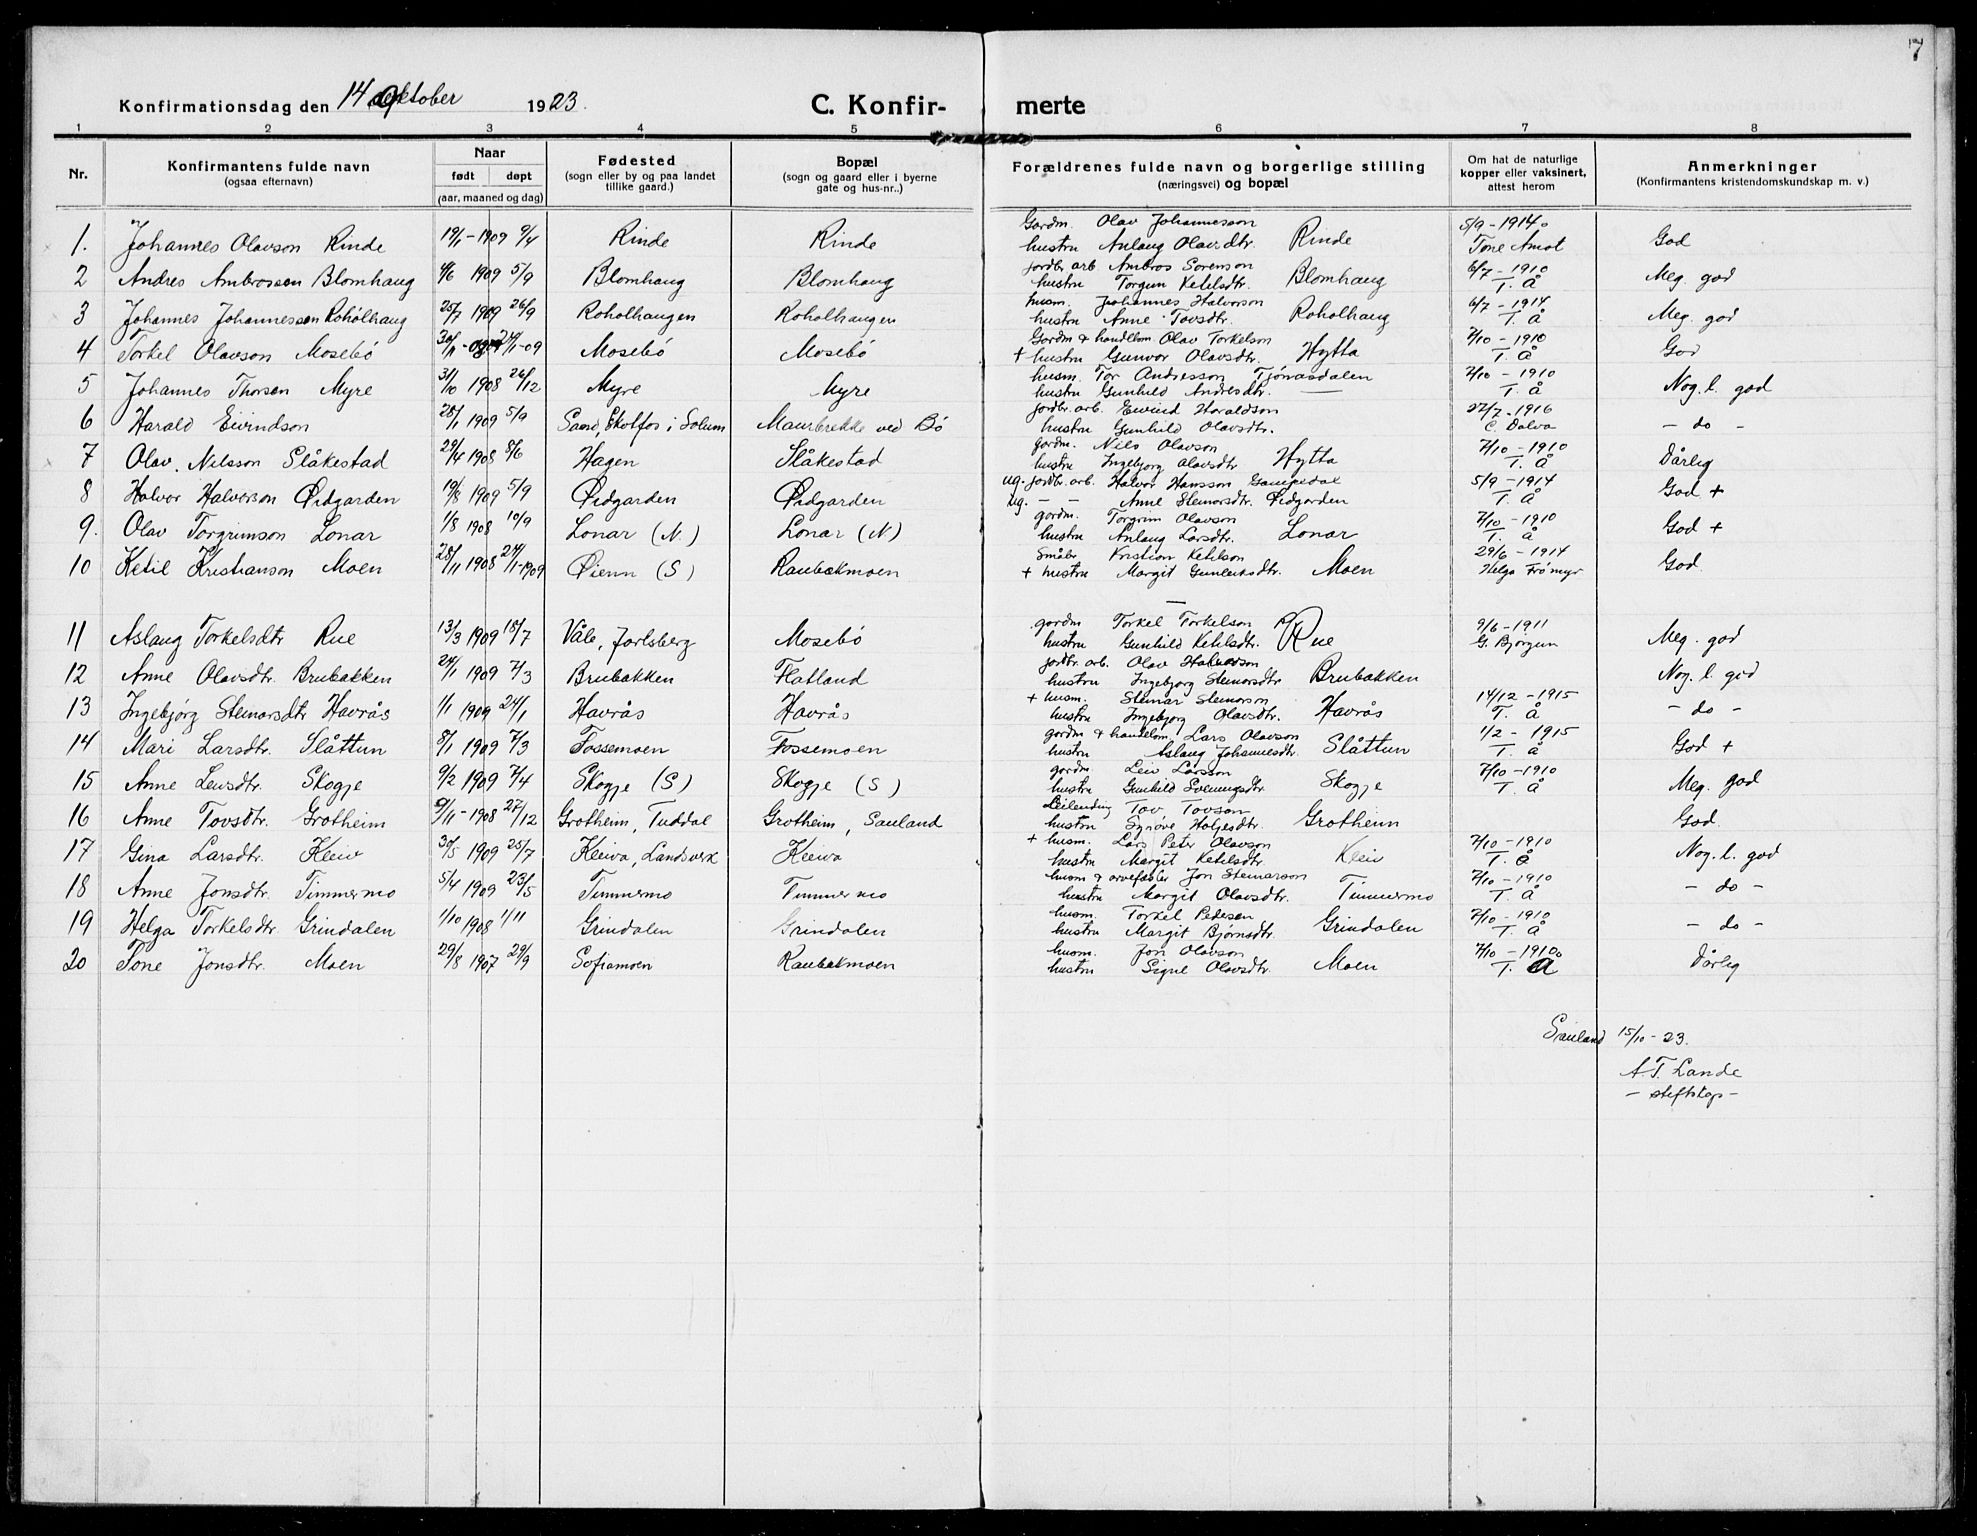 7
Konfirmationsdag den 14 Oktober 1923. C. Konfir- merte
1 2 3 4 5 6 7 8
Nr. Konfirmantens fulde navn (ogsaa efternavn) Naar født døpt (aar, maaned og dag) Fødested (sogn eller by og paa landet tillike gaard.) Bopæl (sogn og gaard eller i byerne gate og hus-nr..) Forældrenes fulde navn og borgerlige stilling (næringsvei) og bopæl Om hat de naturlige kopper eller vaksinert, attest herom Anmerkninger (Konfirmantens kristendomskundskap m. v.)
1. Johannes Olavson Rinde 19/1 - 1909 9/4 Rinde Rinde Gardm. Olav Johannesson hustru Aslaug Olavsdtr. Rinde 5/9 - 1914. Tone Amot God
2 Andres Ambrossen Blomhaug 4/6 1909 5/9 Blomhaug Blomhaug jordbr. arb Ambros Sorenson hustru Torgun Ketilsdtr. Blomhaug 6/7 - 1910 T. Å Meg. god
3 Johannes Johannesson Roholhaug 25/7 1909 26/9 Roholhaugen Roholhaugen husm. Johannes Halvorson hustru Anne Tovsdtr. Roholhaug 6/7 - 1914 T. Å Meg. god
4 Torkel Olavson Mosebö 30/11 - 24/1-09 Mosebö Mosebö Gardm & handlem Olav Torkelson + hustru Gunvor Olavsdtr. Hytta 7/10 - 1910 T. Å God
5 Johannes Thorsen Myre 31/10 1908 26/12 Myre Myre husm. Tor Andresson Tjönasdalen hustru Gunhild Andresdtr. — 7/10 - 1910 T. Å Nog. l. god
6 Harald Eivindson 28/1 1909 5/9 Skotfos i Solum Maurbrekke ved Bö jordbr. arb. Eivind Haraldson hustru Gunhild Olavsdtr. 27/7 - 1916 C. Dalva - do -
7 Olav Nilsson Slåkestad 29/4 1908 8/6 Hagen Slåkestad gardm. Nils Olavson hustru Ingebjorg Olavsdtr Hytta 7/10 - 1910 T. Å Dårlig
8 Halvor Halvorson Øidgarden 19/8 1909 5/9 Øidgarden Øidgarden ug. jordbr. arb. Halvor Hansson Gampedal ug. - - Anne Steinarsdtr. Øidgarden 5/9 - 1914 T. Å God +
9. Olav Torgrimson Lonar 1/8 1908 10/9 Lonar (N.) Lonar (N) gardm. Torgrim Olavson hustru Aslaug Larsdtr. Lonar 7/10 - 1910 T. Å God +
10 Ketil Kristianson Moen 28/11 1908 24/1-1909 Øienn (S) Raubækmoen Småbr Kristian Ketilson + hustru Margit Gunleiksdtr. Moen 29/6 - 1914 Helga Frömyr God
11 Aslaug Torkelsdtr Rue 13/3 1909 18/7 Våle, Jarlsberg Mosebö gardm Torkel Torkelson hustru Gunhild Ketilsdtr. Rue 9/6 - 1911 G. Björgun Meg. god
12 Anne Olavsdtr. Brubakken 24/1 1909 7/3 Brubakken Flatland jordbr. arb. Olav Halvorson hustru Ingebjorg Steinarsdtr Brubakken Nog. l. god
13 Ingebjörg Steinarsdtr Havrås 1/1 1909 24/1 Havrås Havrås + husm. Steinar Steinarson hustru Ingebjorg Olavsdtr. Havrås 14/12 - 1915 T. Å - do -
14 Mari Larsdtr. Slåttun 8/1 1909 7/3 Fossemoen Fossemoen gardm & handelsm. Lars Olavson hustru Aslaug Johannesdtr. Slåttun 1/2 - 1915 T. Å God +
15 Anne Leivsdtr. Skogje 9/2 1909 7/4 Skogje (S) Skogje (S) gardm Leiv Larsson hustru Gunhild Sveinungsdtr Skogje 7/10 - 1910 T. Å Meg. god
16 Anne Tovsdtr. Grotheim 9/11 - 1908 27/12 Grotheim, Tuddal Grotheim, Sauland Leilending Tov Tovson hustru Synöve Holjesdtr. Grotheim God.
17 Gina Larsdtr. Kleiv 30/5 1909 25/7 Kleiva, Landsverk Kleiva + husm. Lars Peter Olavson hustru Margit Ketilsdtr. Kleiv 7/10 - 1910 T. Å Nog. l. god
18 Anne Jonsdtr. Timmermo 5/4 1909 23/5 Timmermo Timmermo husm & arvefæster Jon Steinarson hustru Margit Olavsdtr. Timmermo 7/10 - 1910 T. Å - do -
19 Helga Torkelsdtr Grindalen 1/10 1908 1/11 Grindalen Grindalen husm. Torkel Pedersen hustru Margit Bjørnsdtr. Grindalen 7/10 - 1910 T. Å - do -
20 Tone Jonsdtr. Moen 29/8 1907 29/9 Sofiamoen Raubækmoen husm. Jon Olavson hustru Signe Olavsdtr. Moen 7/10 - 1910 T. Å Dårlig
Sauland 15/10 - 23.
A. T. Lande
- stiftskap -